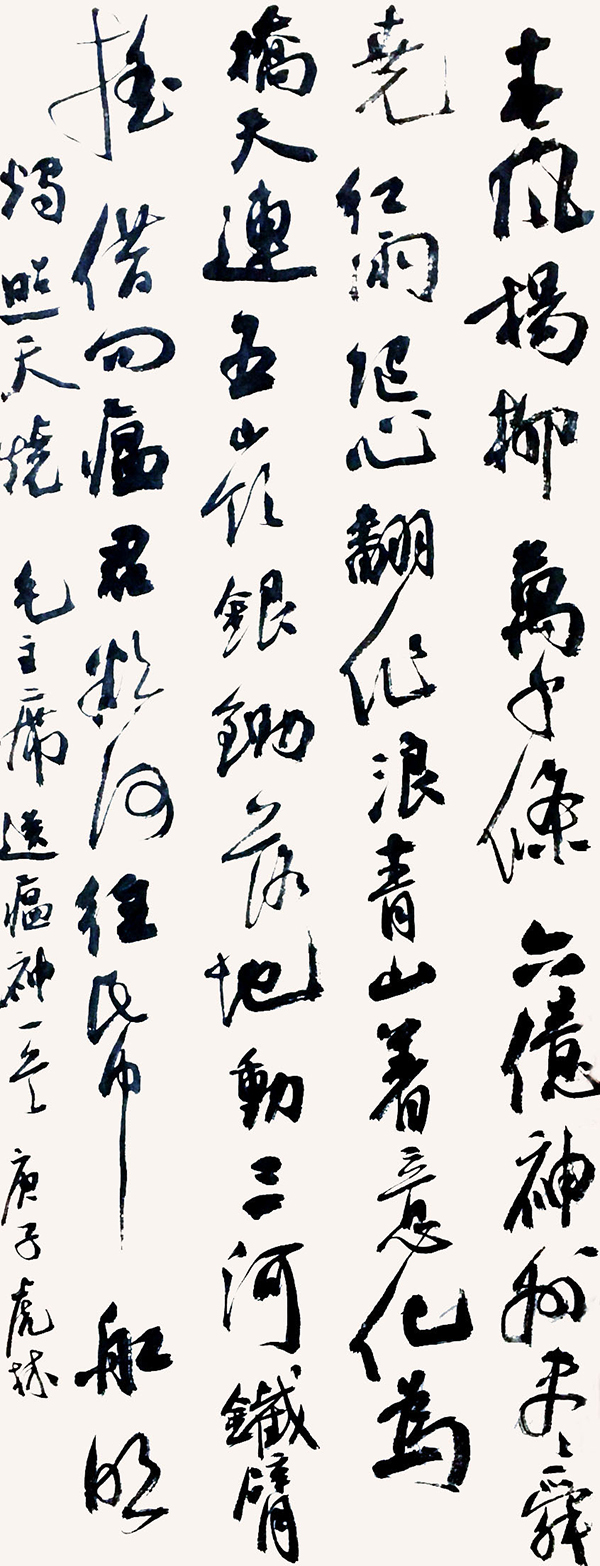 春風楊柳萬千條六億神州尽舜
堯紅雨隨心翻作浪青山着意化為
橋天連五嶺銀鋤落地動三河鐵臂
搖借问瘟君欲何往帋船明
燭照天燒毛主席送瘟神一首庚子虎